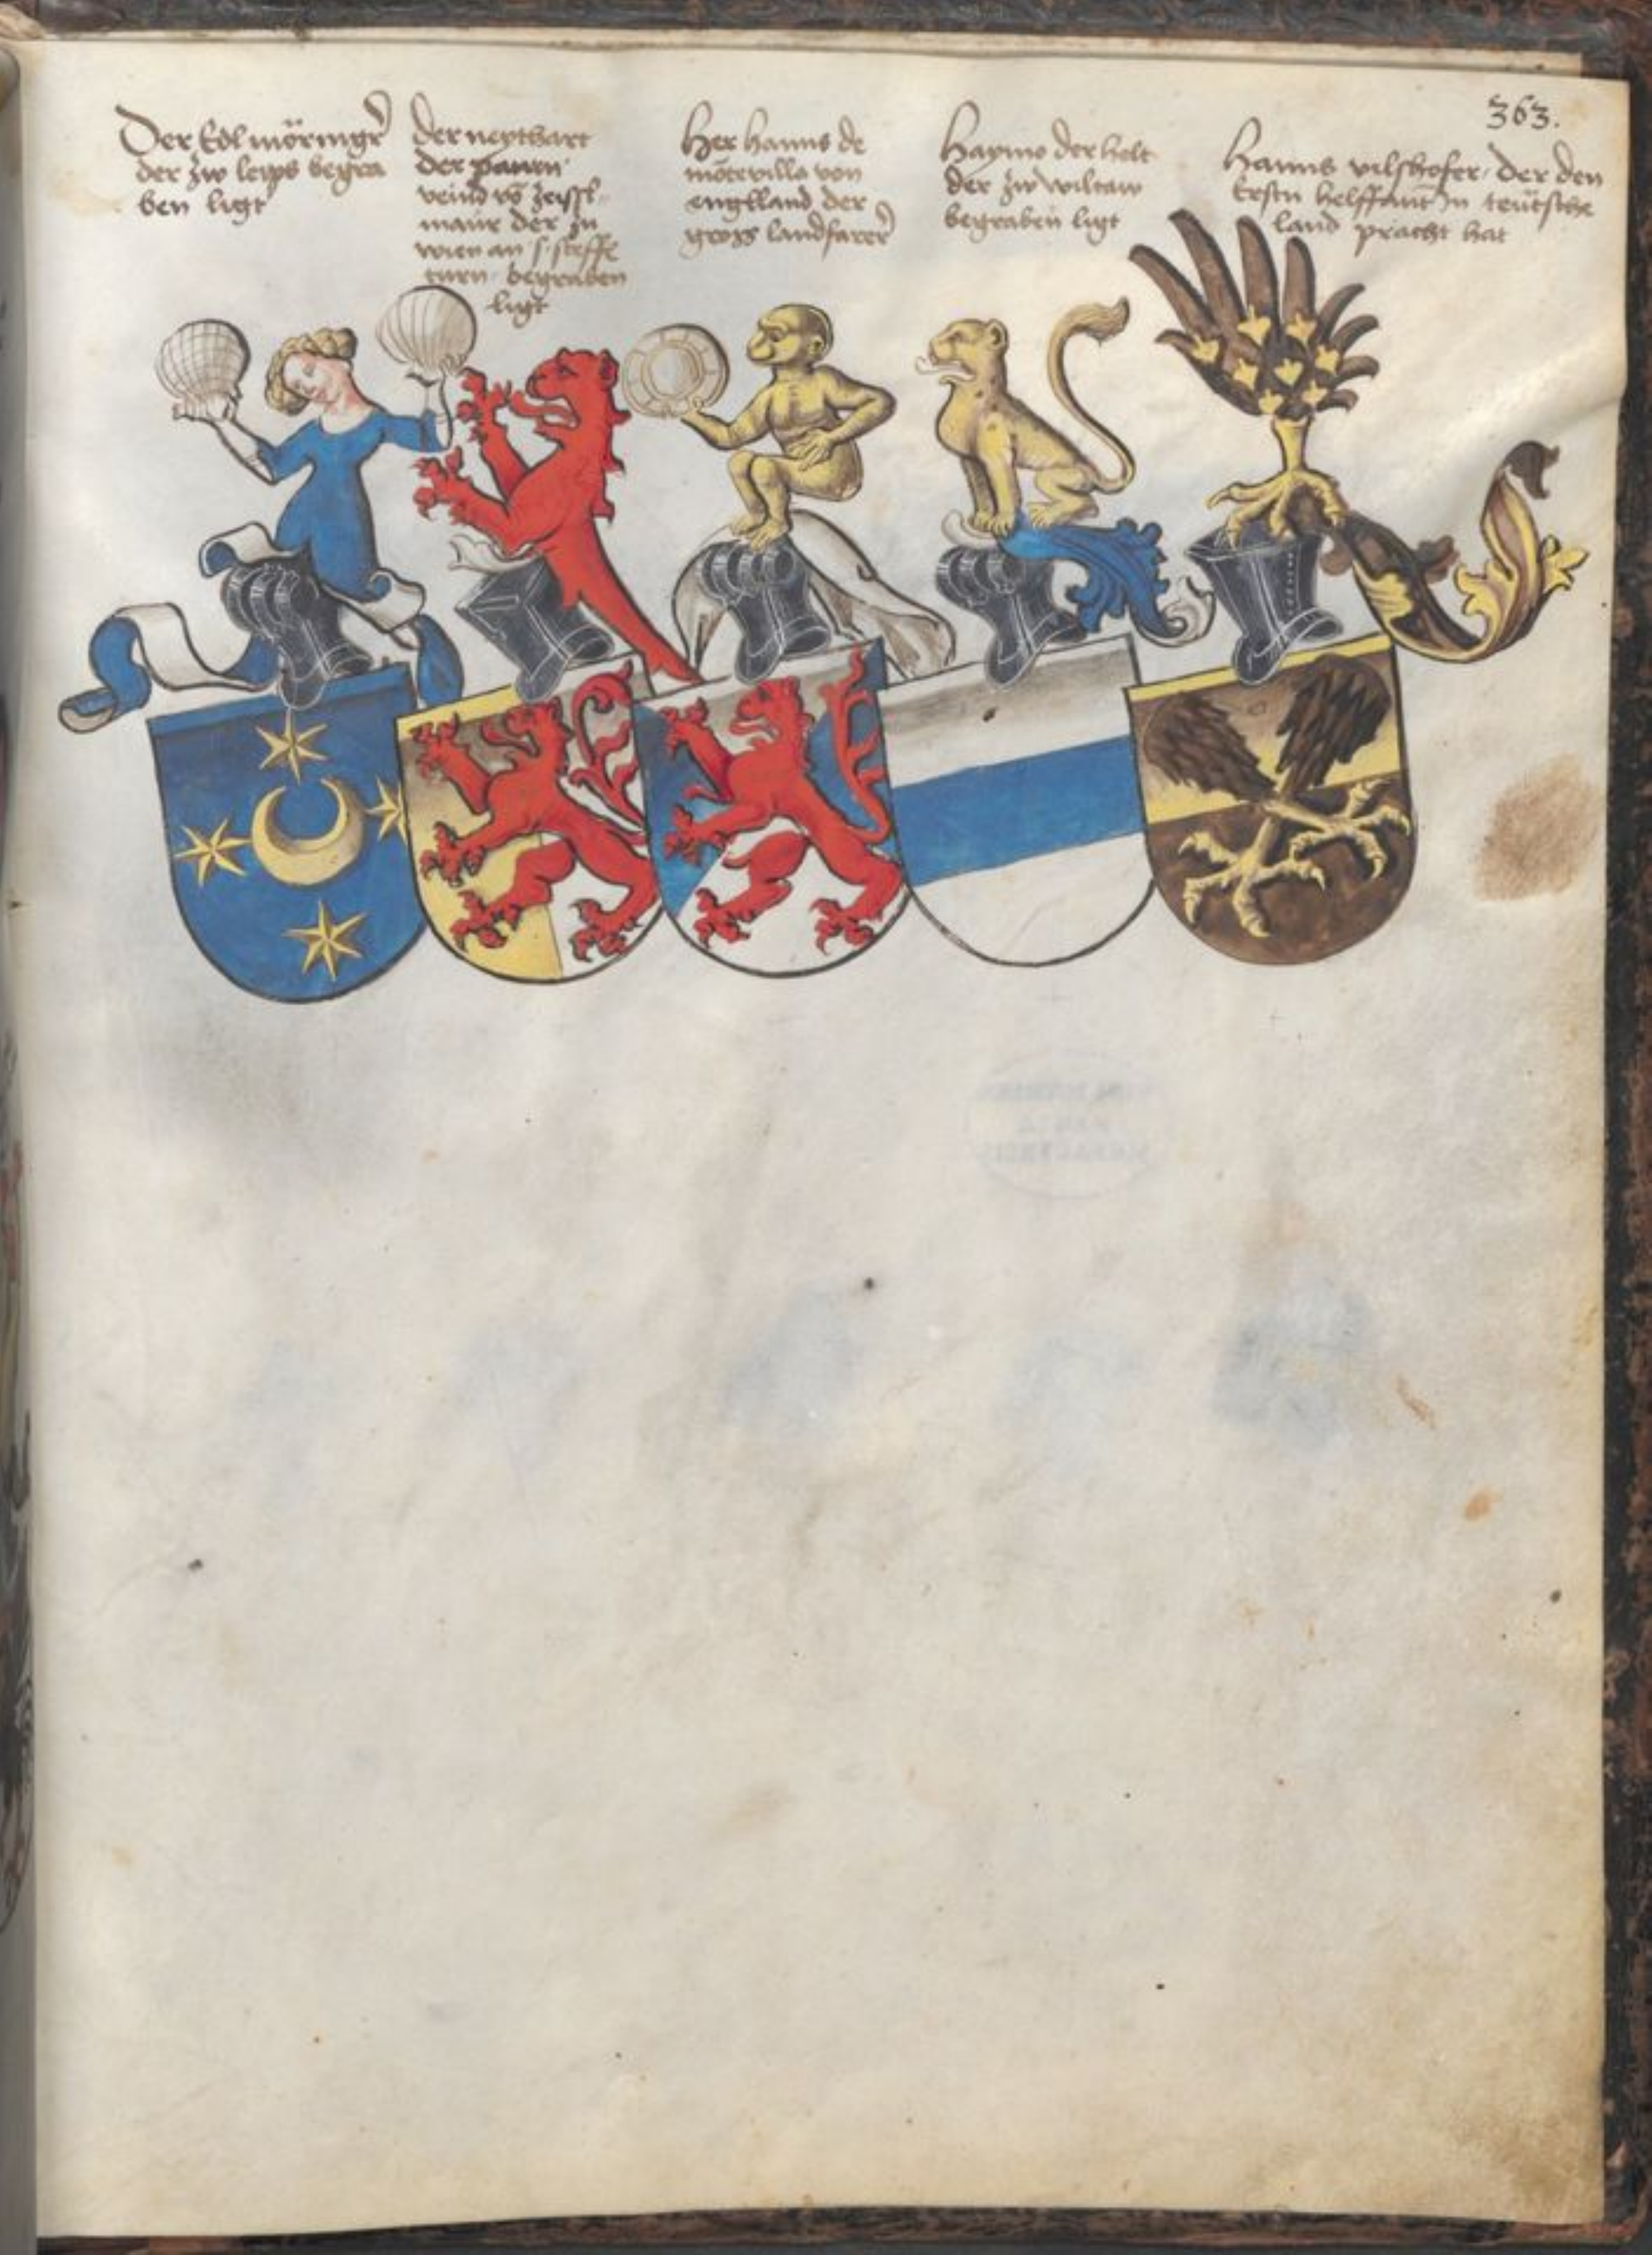 363.
Der Edl möringer
der zw leyps begra
ben ligt
der neythart
der pawrn
veind vō zeissl
maur der zu
wien an s. steffē
turn begraben
ligt
Her hanns de
mōtevilla von
engelland der
gross landfarer
Haymo der helt
der zw wiltaw
begraben ligt
Hanns vilshofer der den
Erstn helffant In teütsche
land pracht hat